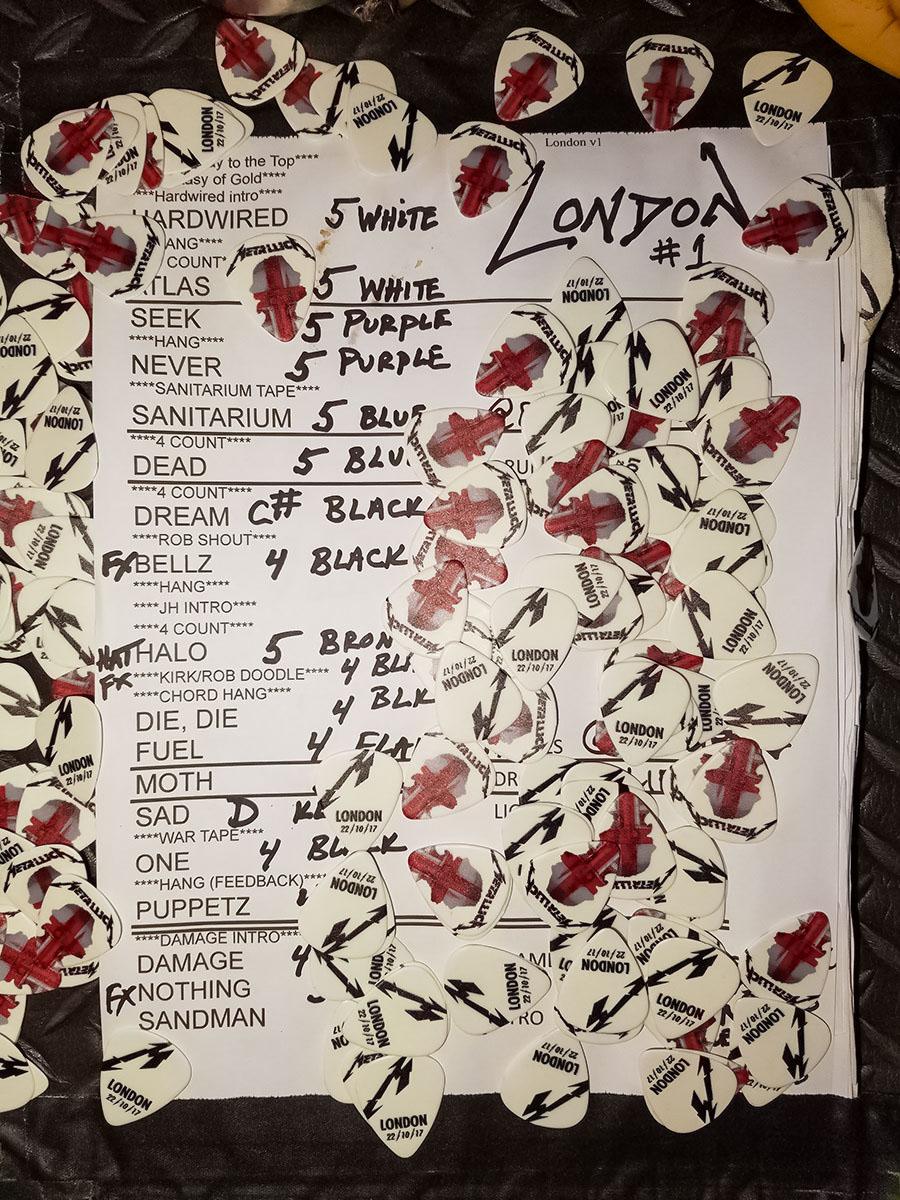 London v1
LONDON
#1
to the Top****
of Gold****
***Hardwired intro****
HARDWIRED 5 WHITE
****
COUNT*
ATLAS 5 WHITE
SEEK 5 PURPLE
****HANG****
NEVER 5 PURPLE
****SANITARIUM TAPE****
SANITARIUM 5 BLUE
****4 COUNT****
DEAD 5 BLU
****4 COUNT****
DREAM C# BLACK
****ROB SHOUT****
FX BELLZ 4 BLACK
****HANG****
****JH INTRO****
****4 COUNT****
HAT HALO 5 BRON
FX ****KIRK/ROB DOODLE**** 4 BL
****CHORD HANG****
DIE, DIE 4 BLK
FUEL 4 FLA
MOTH
SAD D
****WAR TAPE****
ONE 4 BLACK
****HANG (FEEDBACK)****
PUPPETZ
****DAMAGE INTRO****
DAMAGE 4
FX NOTHING
SANDMAN
METALLICA
LONDON
22/10/17